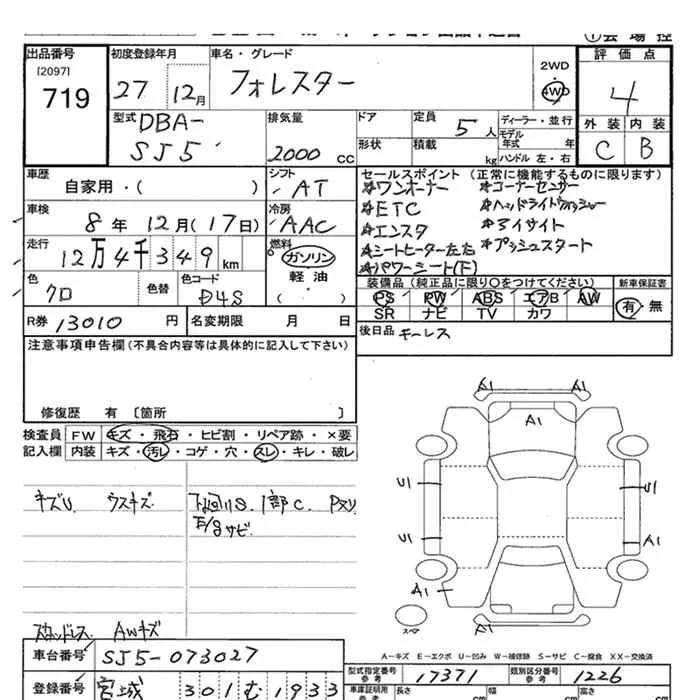 出品番号
[2097]
719
初度登録年月
27 12月
車名・グレード
フォレスター
2WD
4WD
評価点
4
外装 内装
C B
型式 DBA-
SJ5
排気量
2000 CC
ドア
形状
定員
5人
積載
kg
ディーラー・並行
モデル年式 年
ハンドル 左・右
車歴
自家用・( )
シフト
AT
セールスポイント (正常に機能するものに限ります)
☆ワンオーナー ☆コーナーセンサー
☆ETC
☆エンスタ ☆アイサイト
☆シートヒーター左右 ☆プッシュスタート
☆パワーシート(F)
車検
8年 12月(17日)
冷房
AAC
走行
12万4千349km
燃料
ガソリン
軽油
( )
色
クロ
色替
色コード
D4S
装備品 (純正品に限り○をつけてください)
PS PW ABS エアB AW
SR ナビ TV カワ
新車保証書
有・無
R券 13010 円
名変期限 月 日
後日品 キーレス
注意事項申告欄(不具合内容等は具体的に記入して下さい)
修復歴 有 〔箇所 〕
検査員 FW キズ・飛石・ヒビ割・リペア跡・×要
記入欄 内装 キズ・汚レ・コゲ・穴・スレ・キレ・破レ
キズU ウスキズ
下回りS. 1部C.
E/gサビ
AWキズ
A1 A1
A1
U1 U1
U1 A1
A1
A1
スペア
A−キズ E−エクボ U−凹み W−補修跡 S−サビ C−腐食 XX−交換済
車台番号 SJ5-073027
型式指定番号 参考 17371
類別区分番号 参考 1226
登録番号 宮城 301 む 1933
車庫証明用 参考 長さ cm 幅 cm 高さ cm